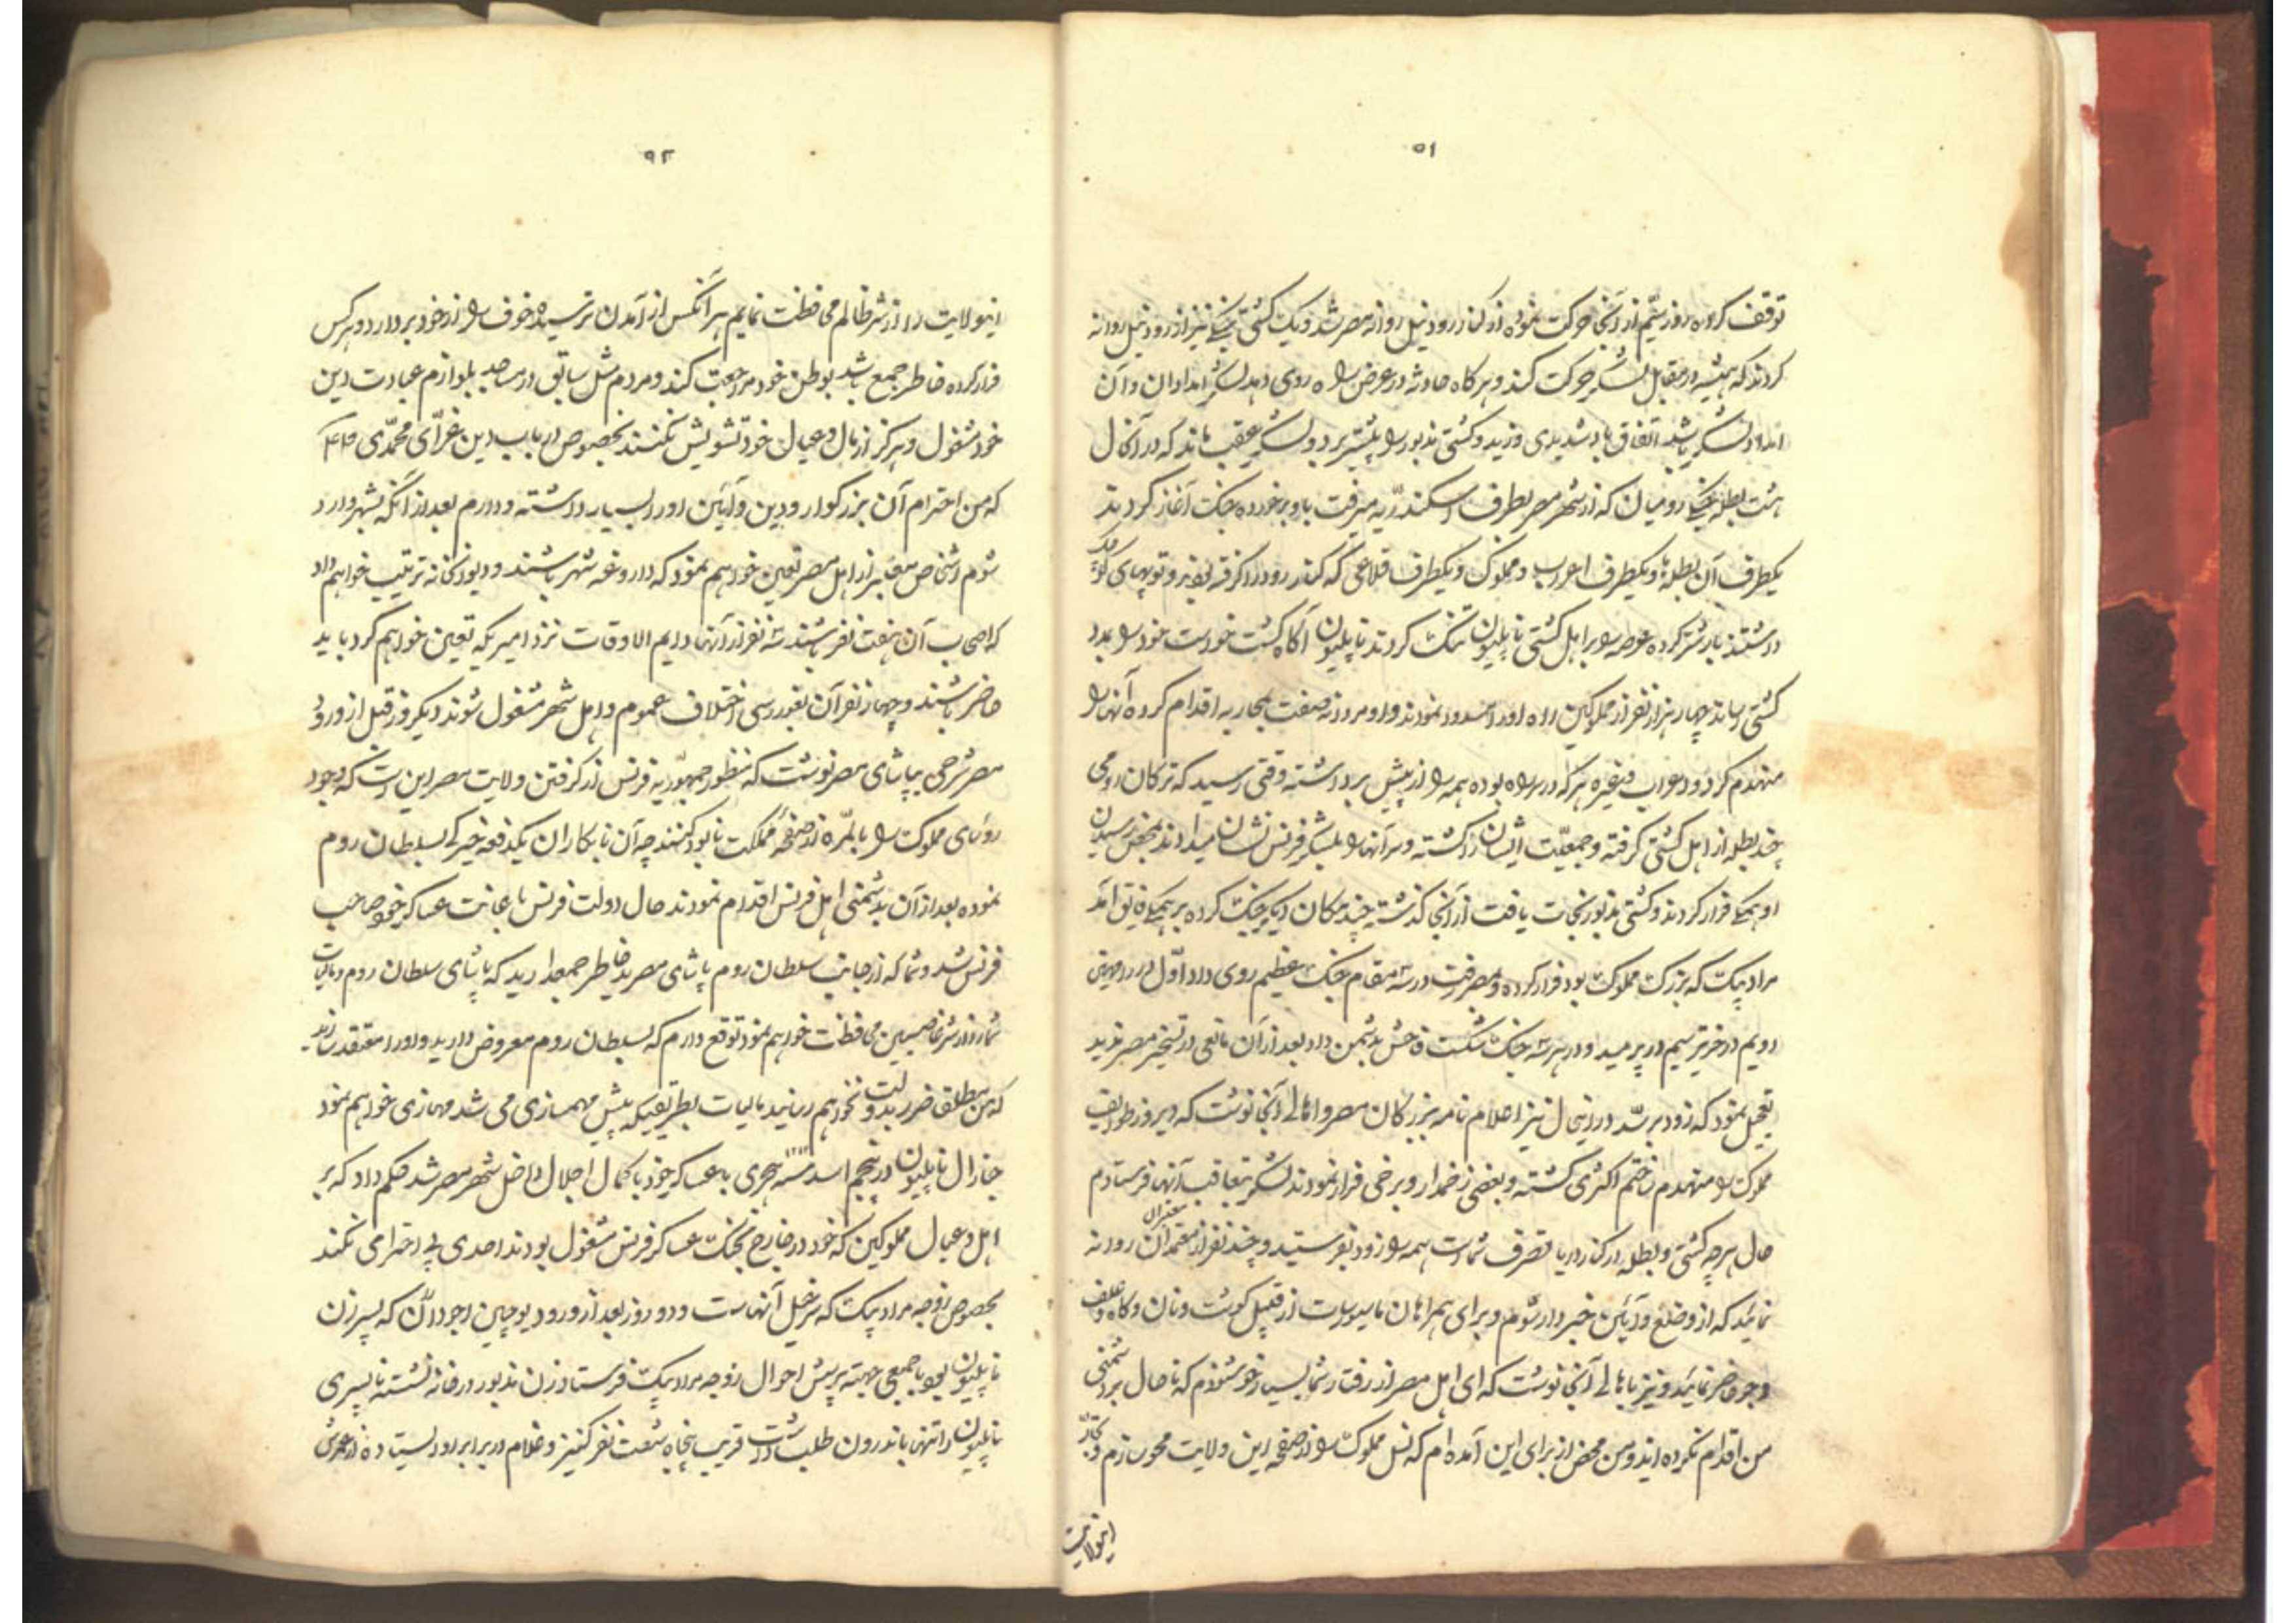 ۵۱
توقف کرده روز ستّم از آنجا حرکت نموده از کنار رود نیل روانه مصر شد و یک کشتی جنگی نیز از رود نیل روانه
کردند که همیشه در مقابل لشکر حرکت کند و هر کاه حادثه در عرض راه روی دهد لشکر امداد آن و آن
امداد لشکر باشد اتفاق باد شدیدی وزید و کشتی مذبور را پیشتر برد و لشکر عقب ماند که در آنحال
هشت بطله جنگی رومیان که از شهر مصر بطرف اسکندریه میرفت باو برخورده جنک آغاز کردند
یکطرف آن بطله‌ها و یکطرف اعراب و مملوک و یکطرف قلاعی که کنار رود را گرفته بودند و توپهای
داشتند بار شتر کرده عرصه را بر اهل کشتی ناپلیون تنک کردند ناپلیون آکاه کشت خواست خود را بمدد
کشتی رساند چهار هزار نفر از مملوکین راه او را مسدود نمودند و او مردانه صفت بمحاربه اقدام کرده آنها را
منهدم کرد و اعراب و غیره هر که در راه بوده همه را از پیش برداشته وقتی رسید که ترکان رومی
چند بطله از اهل کشتی گرفته و جمعیّت ایشان را کشته و سر آنها را بلشکر فرنس نشان میدادند بمحض رسیدن
او همکی فرار کردند و کشتی مذبور نجات یافت از آنجا کذشته چند مکان دیکر جنک کرده بر همکی فایق آمد
مراد بیک که بزرک مملوک بود فرار کرده بمصر رفت در سه مقام جنک عظیم روی داد اوّل در
دویم در سیم در و در هر سه جنک شکست فاحش بدشمن داد بعد از آن مانعی در تسخیر مصر ندید
تعجیل نمود که زود برسد در اینحال نیز اعلام نامه ببزرکان مصر و اهالی آنجا نوشت که دیروز طوایف
مملوک را منهدم ساختم اکثری کشته و بعضی زخمدار و برخی فرار نمودند لشکر بتعاقب آنها فرستادم
حال هر چه کشتی و بطله در کنار دریا بتصرف شماست همه را زود بفرستید و چند نفر از معتمدان روانه
معتبران
نمائید که از وضع و آیین خبردار شوم و برای همراهان ما سیورسات از قبیل کوشت و نان و کاه و علف
و جو حاضر نمائید و نیز باهالی آنجا نوشت که ای اهل مصر از رفتار شما بسیار خوشنودم که تا حال بر دشمنی
من اقدام نکرده‌اید و من محض از برای این آمده‌ام که نسل مملوک را از صفحه این ولایت محو سازم و تجار
اینولایت
۵۲
اینولایت را از شر ظالم محافظت نمایم هر آنکس از آمدن ترسیده خوف را از خود بردارد و هر کس
فرار کرده خاطر جمع باشد بوطن خود مراجعت کند و مردم مثل سابق در مساجد بلوازم عبادت دین
خود مشغول و هرکز از مال و عیال خود تشویش نکنند بخصوص در باب دین غرّای محمّدی
که من احترام آن بزرکوار و دین و آئین او را بسیار داشته و دارم بعد از آنکه بشهر وارد
شوم اشخاص معتبر از اهل مصر تعین خواهم نمود که داروغه شهر باشند و دیوانخانه ترتیب خواهم داد
که اصحاب آن هفت نفر باشند سه نفر از آنها دایم الاوقات نزد امیریکه تعین خواهم کرد باید
حاضر باشند و چهار نفر آن بغوررسی اختلاف عموم و اهل شهر مشغول شوند دیکر روز قبل از ورود
مصر شرحی بپاشای مصر نوشت که منظور جمهوریه فرنس از کرفتن ولایت مصر این است که وجود
روسای مملوک را بالمرّه از صفحه مملکت نابود کنند چه آن نابکاران یکدفعه بسلطان روم
نموده بعد از آن بدشمنی اهل فرنس اقدام نمودند حال دولت فرنس باعانت عساکر خود صاحب
فرنس شد و شما که از جانب سلطان روم پاشای مصرید خاطر جمعدارید که پاشای سلطان روم و مالیات
شما را از شر غاصبین محافظت خواهم نمود توقع دارم که بسلطان روم معروض دارید و او را معتقد سازید
که من مطلق ضرر بدولت نخواهم رسانید مالیات بطریقیکه پیش مهمسازی می شد مهمسازی خواهم نمود
جنرال ناپلیون در پنجم اسد سنه هجری با عساکر خود با کمال اجلال داخل شهر مصر شد حکم داد که بر
اهل و عیال مملوکین که خود در خارج بجنک عساکر فرنس مشغول بودند احدی بی احترامی نکند
بخصوص زوجه مراد بیک که سرخیل آنهاست و دو روز بعد از ورود یوجین که پسر زن
ناپلیون بود با جمعی جهته پرسش احوال زوجه مراد بیک فرستاد زن مذبور در خانه نشسته تا پسری
ناپلیون را تنها باندرون طلب داشت قریب پنجاه شصت نفر کنیز و غلام در برابر او ایستاده از